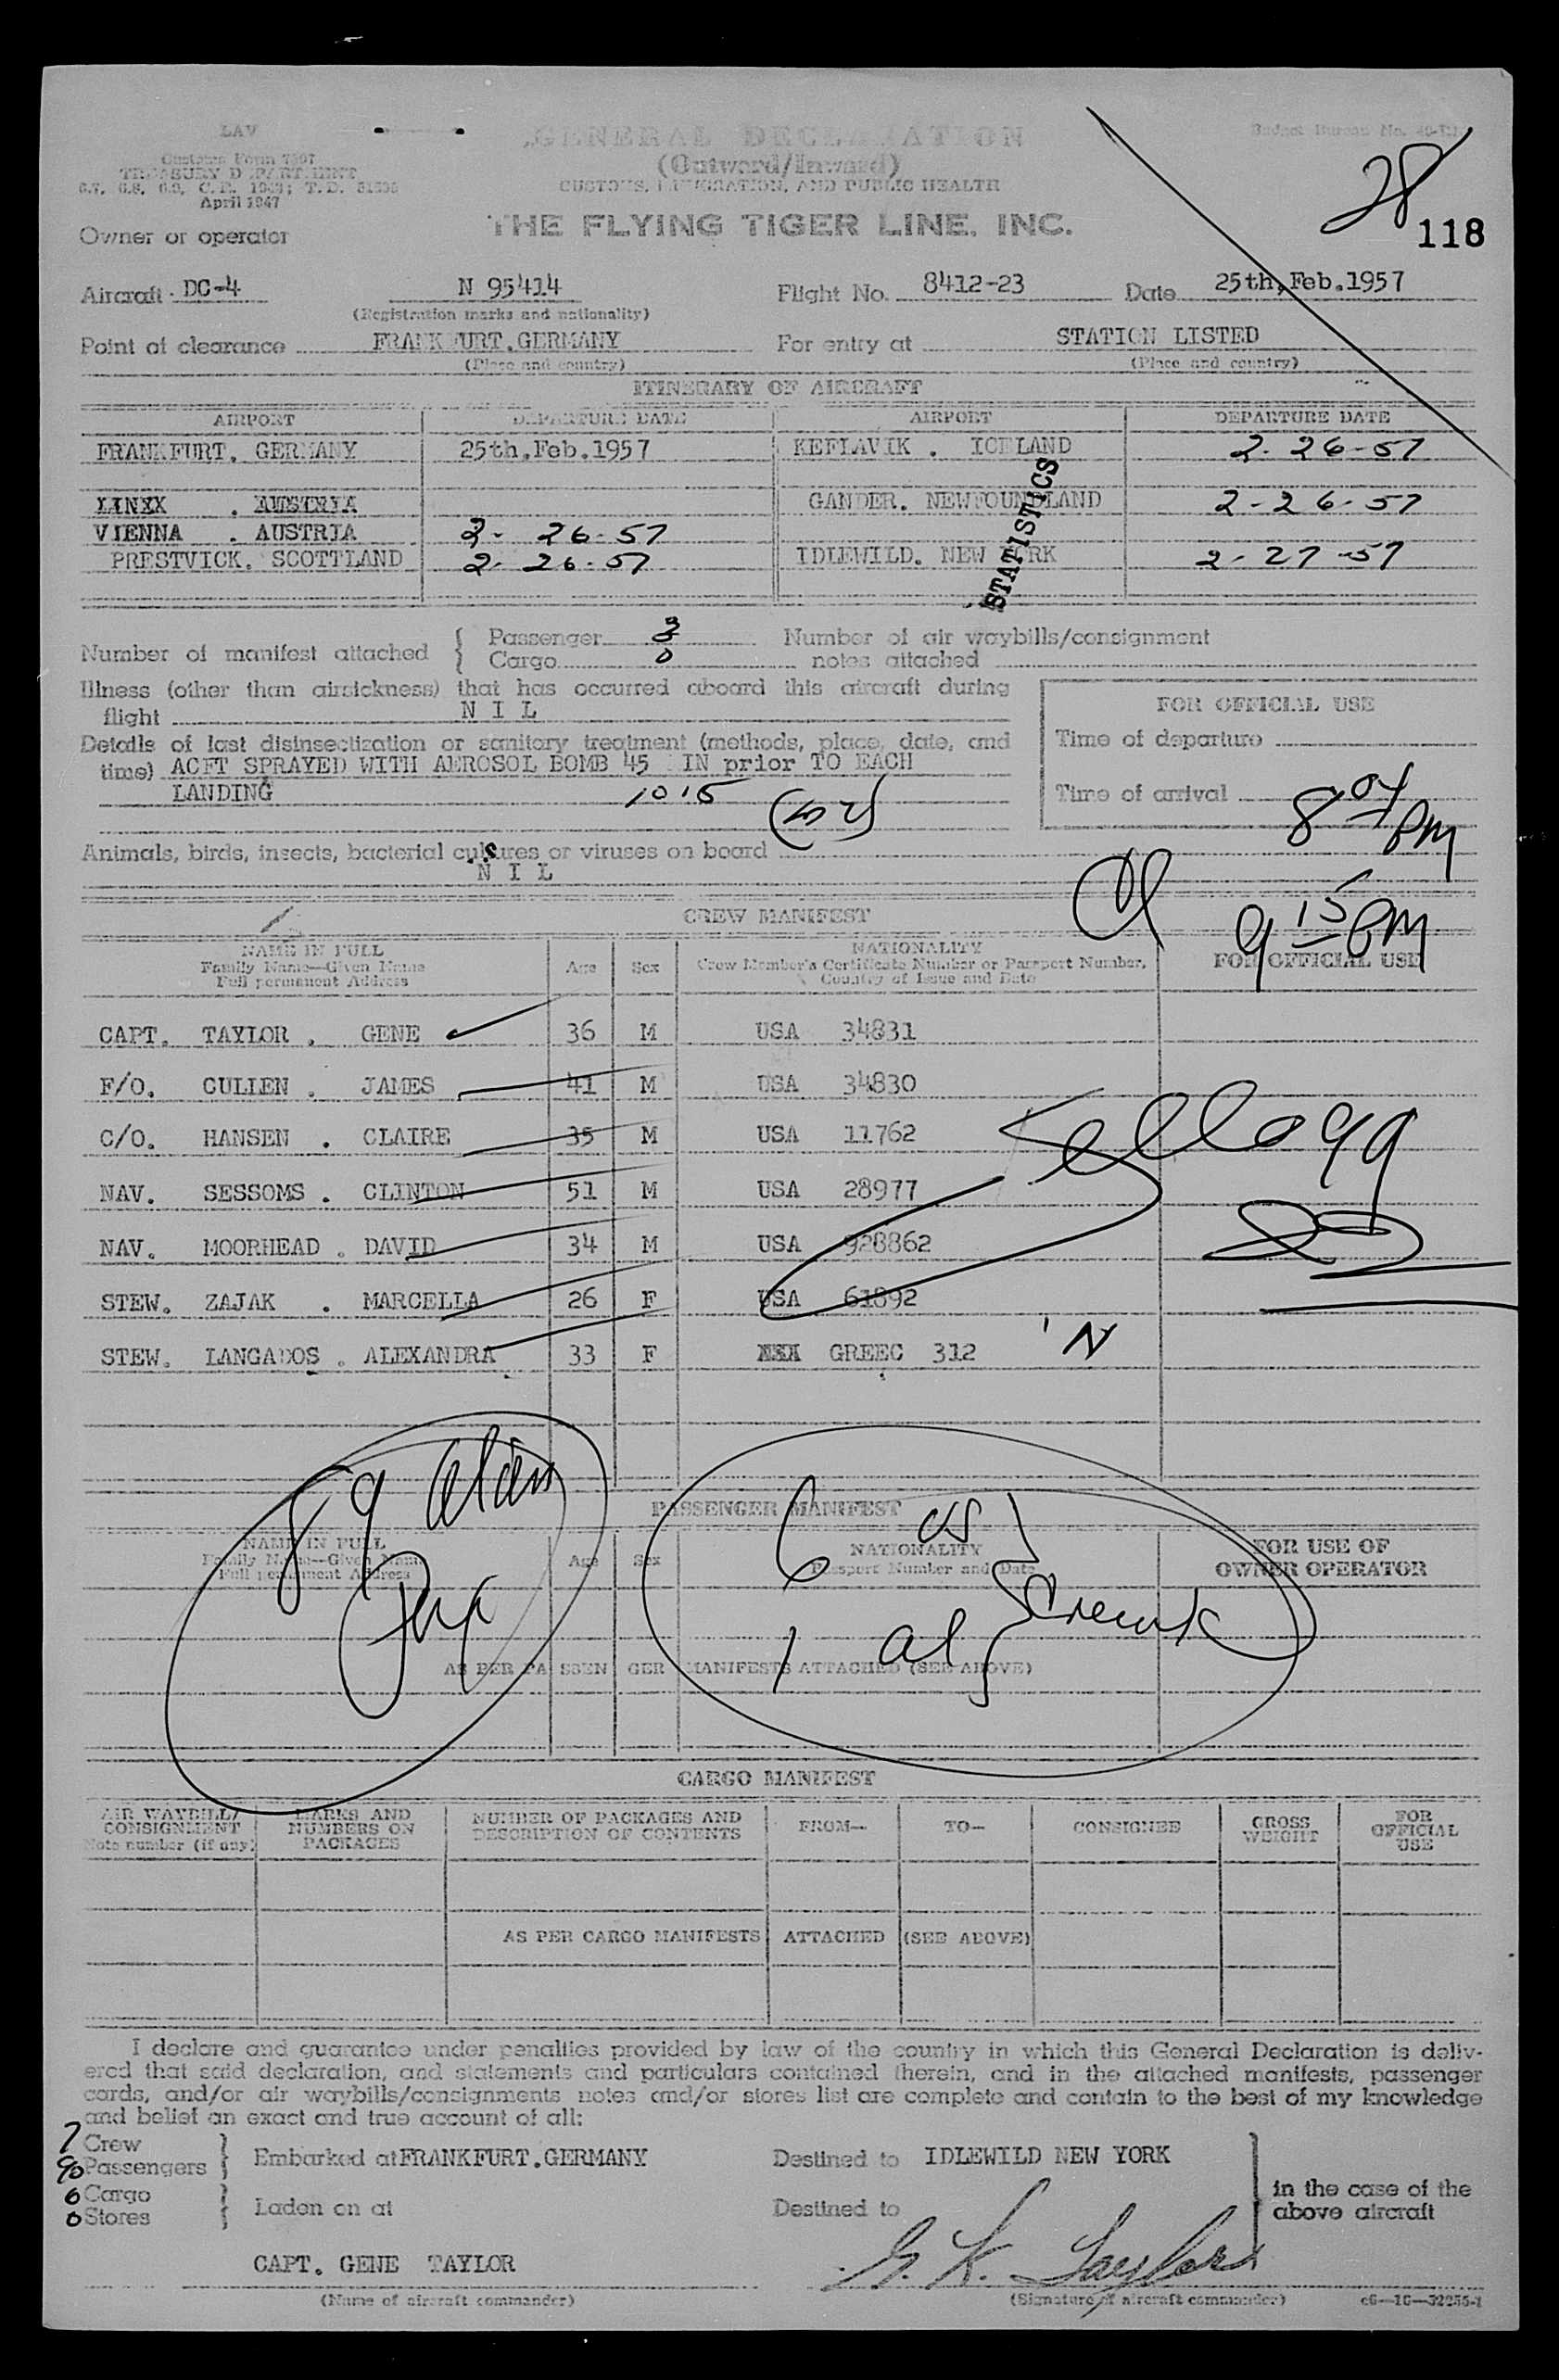 LAV
Customs Form 7507
TREASURY DEPARTMENT
April 1947
GENERAL DECLARATION
(Outward/Inward)
CUSTOMS, IMMIGRATION, AND PUBLIC HEALTH
Budget Bureau No.
28
118
Owner or operator
THE FLYING TIGER LINE, INC.
Aircraft DC-4 N 95414 Flight No. 8412-23 Date 25th,Feb.1957
(Registration marks and nationality)
Point of clearance FRANKFURT.GERMANY For entry at STATION LISTED
(Place and country) (Place and country)
ITINERARY OF AIRCRAFT
AIRPORT DEPARTURE DATE AIRPORT DEPARTURE DATE
FRANKFURT. GERMANY 25th.Feb.1957 KEFLAVIK . ICELAND 2-26-57
LINXX . AUSTRIA GANDER. NEWFOUNDLAND 2-26-57
VIENNA . AUSTRIA 2-26-57
PRESTVICK. SCOTTLAND 2-26-57 IDLEWILD. NEW YORK 2-27-57
STATISTICS
Number of manifest attached { Passenger 3 Number of air waybills/consignment
Cargo 0 notes attached
Illness (other than airsickness) that has occurred aboard this aircraft during
flight N I L
FOR OFFICIAL USE
Details of last disinsectization or sanitary treatment (methods, place, date, and
Time of departure
time) ACFT SPRAYED WITH AEROSOL BOMB 45 IN prior TO EACH
LANDING 1015
Time of arrival 8 04 PM
Animals, birds, insects, bacterial cultures or viruses on board
N I L
9 15 PM
CREW MANIFEST
NAME IN FULL
Family Name—Given Name
Full permanent Address
Age Sex
NATIONALITY
Crew Member's Certificate Number or Passport Number,
Country of Issue and Date
FOR OFFICIAL USE
CAPT. TAYLOR . GENE 36 M USA 34831
F/O. CULLEN . JAMES 41 M USA 34830
C/O. HANSEN . CLAIRE 35 M USA 11762
Kellogg
NAV. SESSOMS . CLINTON 51 M USA 28977
NAV. MOORHEAD . DAVID 34 M USA 928862
STEW. ZAJAK . MARCELLA 26 F USA 61892
STEW. LANGADOS . ALEXANDRA 33 F GREEC 312 N
89 alien
PASSENGER MANIFEST
6 US
NAME IN FULL
Family Name—Given Name
Full permanent Address
Age Sex
NATIONALITY
Passport Number and Date
FOR USE OF
OWNER OPERATOR
1 al } Crew
AS PER PASSENGER MANIFESTS ATTACHED (SEE ABOVE)
CARGO MANIFEST
AIR WAYBILL/
CONSIGNMENT
Note number (if any)
MARKS AND
NUMBERS ON
PACKAGES
NUMBER OF PACKAGES AND
DESCRIPTION OF CONTENTS
FROM— TO— CONSIGNEE
GROSS
WEIGHT
FOR
OFFICIAL
USE
AS PER CARGO MANIFESTS ATTACHED (SEE ABOVE)
I declare and guarantee under penalties provided by law of the country in which this General Declaration is deliv-
ered that said declaration, and statements and particulars contained therein, and in the attached manifests, passenger
cards, and/or air waybills/consignments notes and/or stores list are complete and contain to the best of my knowledge
and belief an exact and true account of all:
7 Crew
90 Passengers } Embarked at FRANKFURT.GERMANY Destined to IDLEWILD NEW YORK
0 Cargo
0 Stores } Laden on at Destined to
in the case of the
above aircraft
CAPT. GENE TAYLOR G. K. Taylor
(Name of aircraft commander) (Signature of aircraft commander) c6—16—52255-1